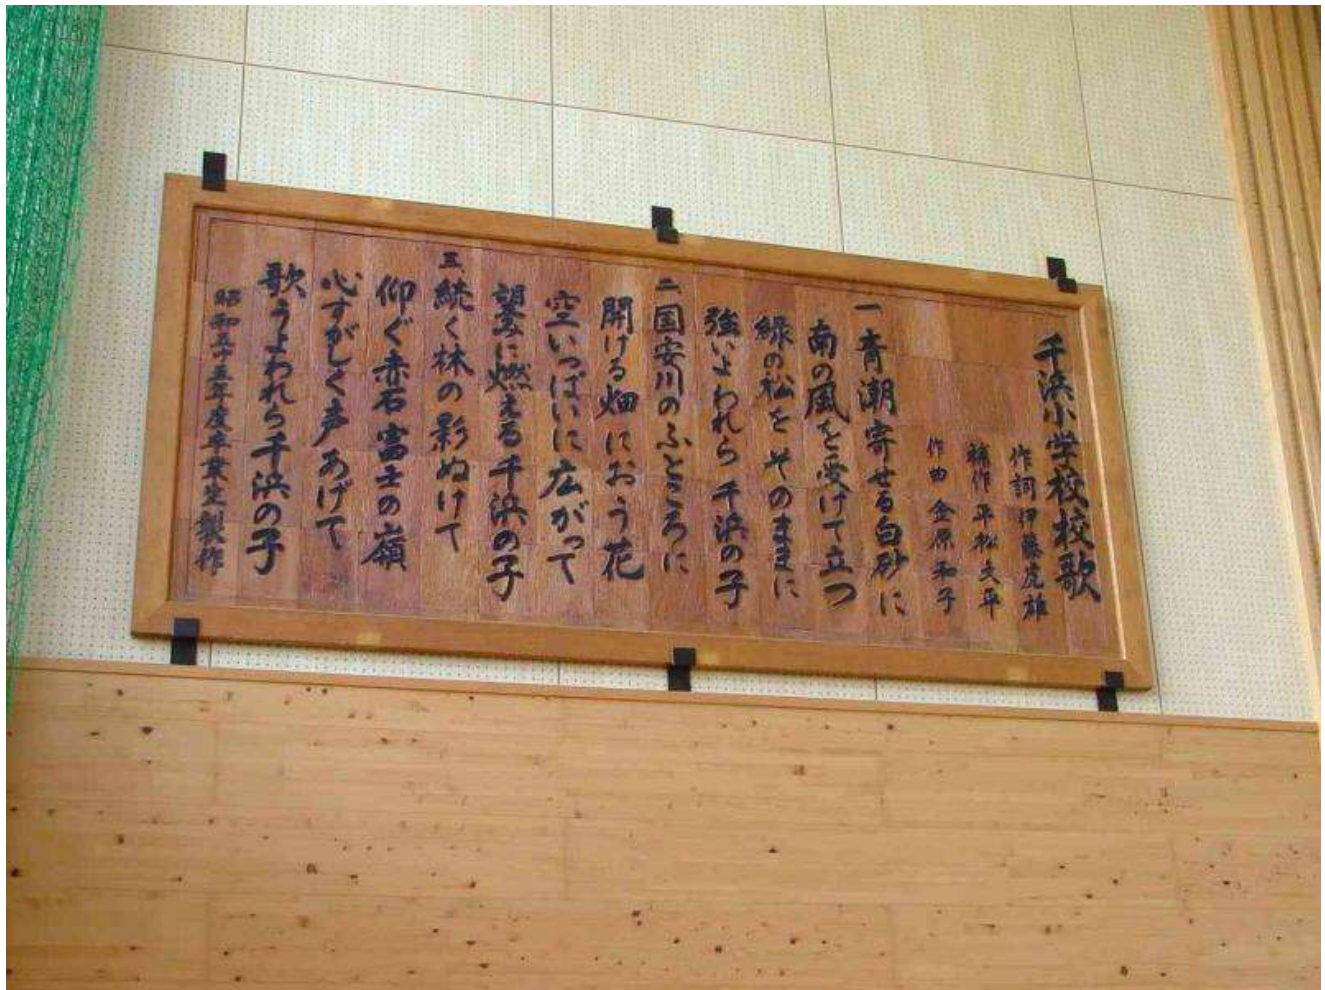 千浜小学校校歌
作詞 伊藤虎雄
補作 平松久平
作曲 金原和子
一 青潮寄せる白砂に
南の風を受けて立つ
緑の松をそのままに
強いよわれら千浜の子
二 国安川のふところに
開ける畑におう花
空いっぱいに広がって
望みに燃える千浜の子
三 続く林の影ぬけて
仰ぐ赤石富士の嶺
心すがしく声あげて
歌うよわれら千浜の子
昭和五十五年度卒業生製作